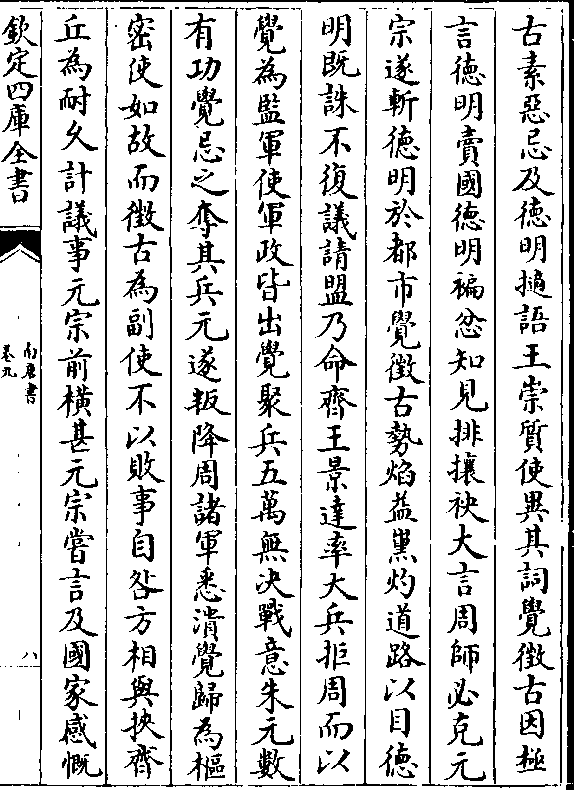 古素惡忌及德明擿語王崇質使異其詞覺徴古因極
言德明賣國德明褊忿知見排攘袂大言周師必克元
宗遂斬德明於都市覺徴古勢焰益熏灼道路以目德
明既誅不復議請盟乃命齊王景達率大兵拒周而以
覺為監軍使軍政皆出覺聚兵五萬無决戰意朱元數
有功覺忌之奪其兵元遂叛降周諸軍悉潰覺歸為樞
密使如故而徴古為副使不以敗事自咎方相與挾齊
丘為耐久計議事元宗前橫甚元宗嘗言及國家感慨
欽定四庫全書
南唐書
卷九
八